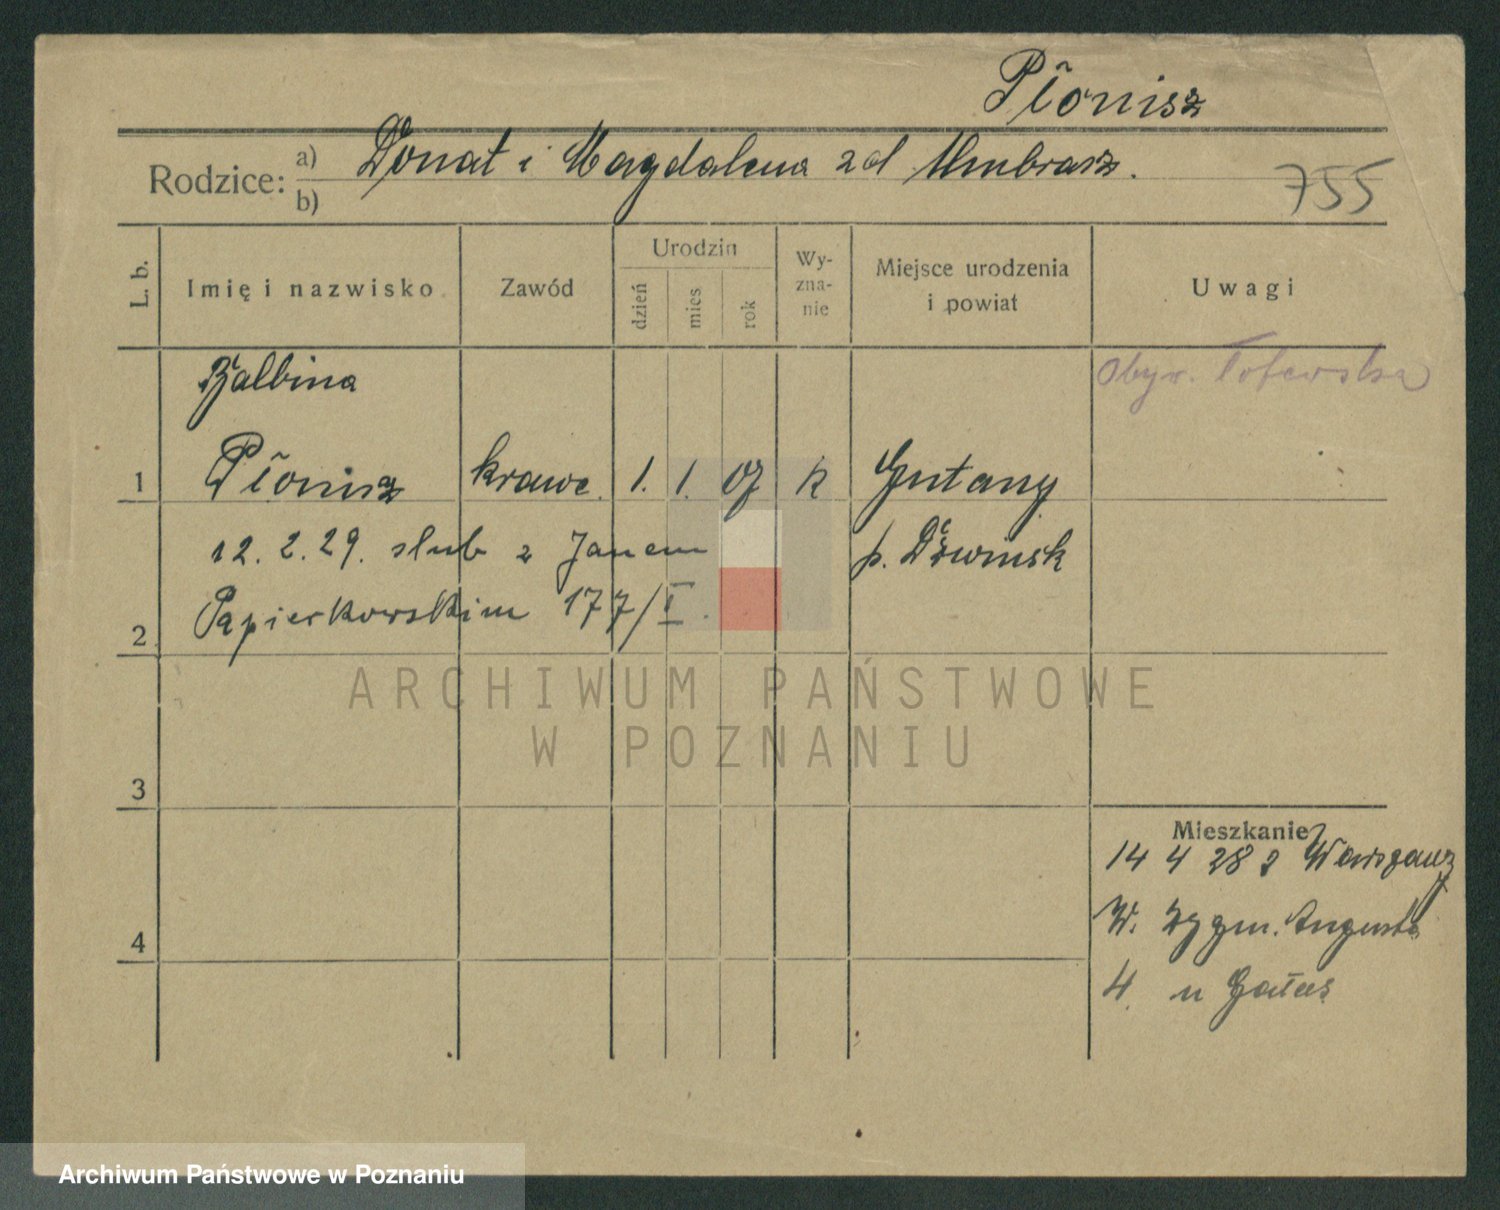 Płonisz
Rodzice: a) Donat i Magdalena zd Umbrasz.
b)
755
L. b. Imię i nazwisko Zawód Urodzin dzień mies rok Wyznanie Miejsce urodzenia i powiat Uwagi
Balbina obyw. Łotewska
1 Płonisz krawc. 1. 1. 07 k Gutany
12.2.29. slub z Janem p. Dźwinsk
2 Papierkowskim 177/I.
ARCHIWUM PAŃSTWOWE
W POZNANIU
3
Mieszkanie
14 4 28 z Warszawy
W. Zygm. Augusta
4
4 u Gałas
Archiwum Państwowe w Poznaniu